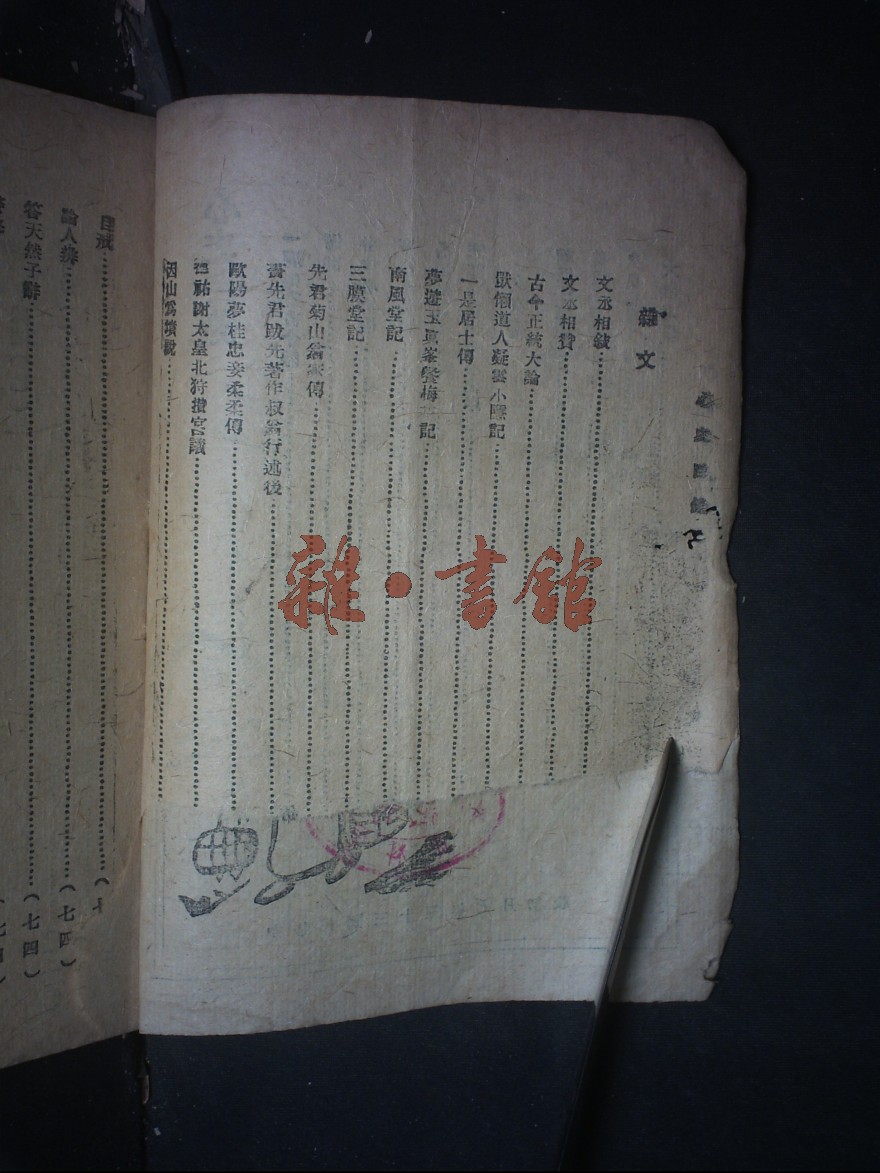 雜文
文丞相敍
文丞相贊
古今正統大論
獃懶道人凝雲小隱記
一是居士傳
夢遊玉真峯餐梅花記
南風堂記
三膜堂記
先君菊山翁家傳
書先君跋先著作叔翁行述後
歐陽夢桂忠妾柔柔傳
德祐謝太皇北狩攢宮議
因山爲墳說
自戒
論人
答天然子辭
(七四)
(七四)
雜·書館